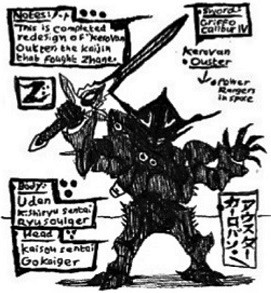 Notes:
This is completed
redesign of "Kerovan
Outzen the Kaijin
that fought Zhane.
Sword:
Griffo
calibur IV
Kerovan
Ouster
Power
Rangers
in space
Z
Body:
Uden
Kishiryu sentai
Ryusoulger
Head
kaisou sentai
Gokaiger
アウスター
カーロバン